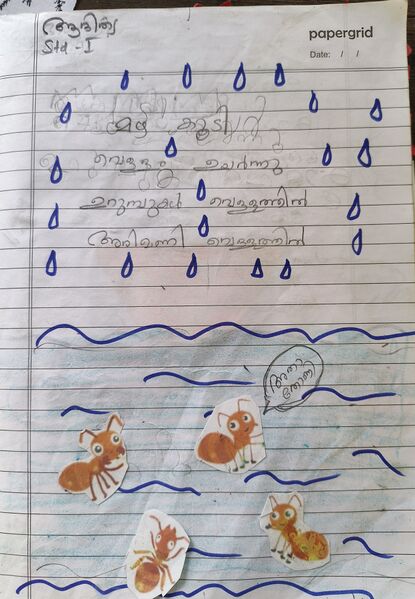 ആദിത്യ
Std - I
papergrid
Date: / /
മഴ കൂടി
വെള്ളം ഉയർന്നു
ഉറുമ്പുകൾ വെള്ളത്തിൽ
അരിമണി വെള്ളത്തിൽ